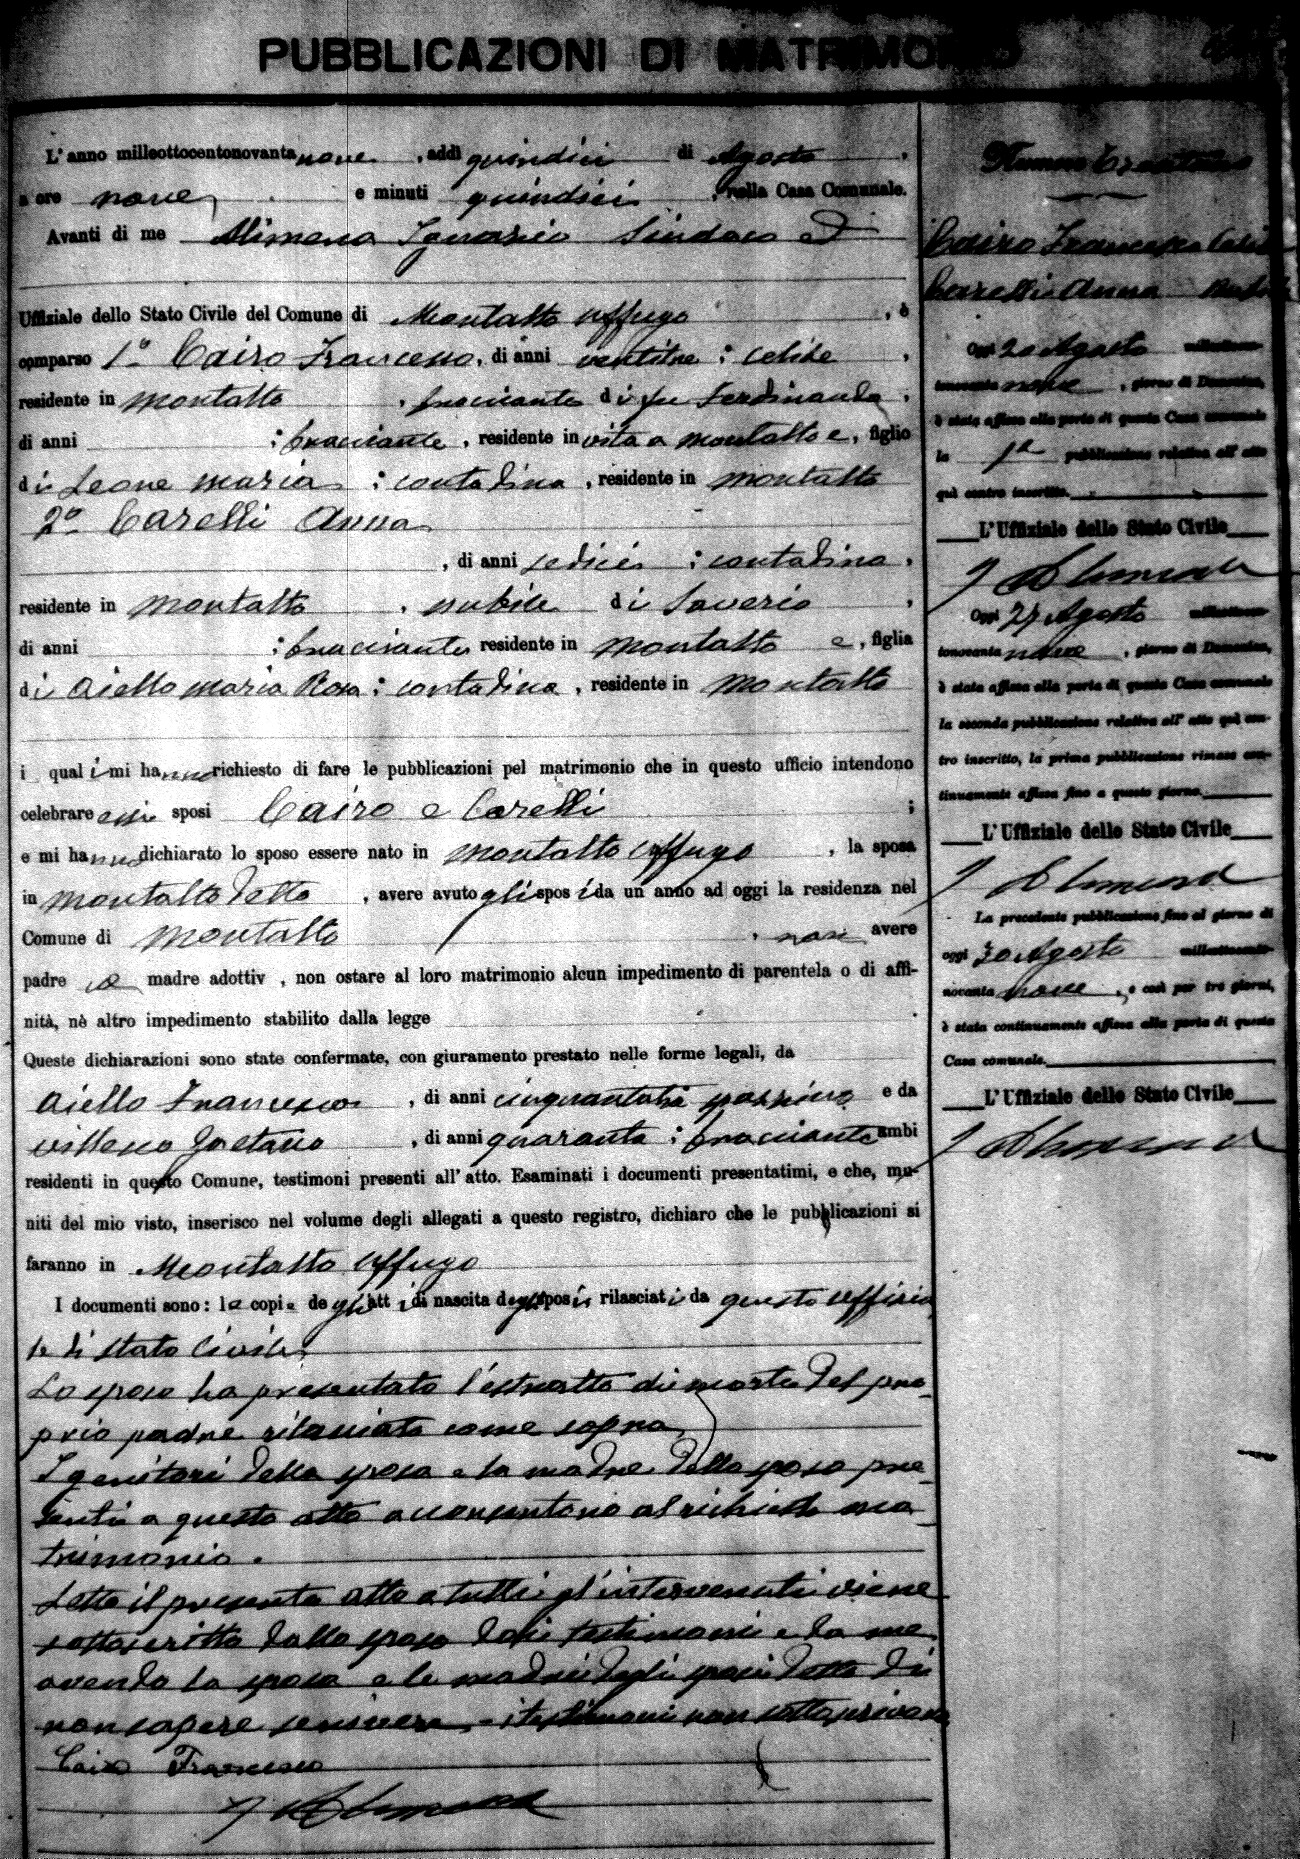 PUBBLICAZIONI DI MATRIMONIO
L'anno milleottocentonovanta nove, addì quindici di Agosto,
a ore nove e minuti quindici, nella Casa Comunale.
Avanti di me Alimena Ignazio Sindaco ed
Uffiziale dello Stato Civile del Comune di Montalto Uffugo, è
comparso 1° Cairo Francesco, di anni ventitre; celibe,
residente in Montalto, bracciante di fu Ferdinando,
di anni ; bracciante, residente in vita a Montalto e, figlio
di Leone Maria; contadina, residente in Montalto
2° Carelli Anna
, di anni sedici; contadina,
residente in Montalto, nubile di Saverio,
di anni ; bracciante residente in Montalto e, figlia
di Aiello Maria Rosa; contadina, residente in Montalto
i quali mi hanno richiesto di fare le pubblicazioni pel matrimonio che in questo ufficio intendono
celebrare essi sposi Cairo e Carelli;
e mi hanno dichiarato lo sposo essere nato in Montalto Uffugo, la sposa
in Montalto detto, avere avuto gli sposi da un anno ad oggi la residenza nel
Comune di Montalto, non avere
padre madre adottiv , non ostare al loro matrimonio alcun impedimento di parentela o di affi-
nità, nè altro impedimento stabilito dalla legge
Queste dichiarazioni sono state confermate, con giuramento prestato nelle forme legali, da
Aiello Francesco, di anni e da
Gaetano, di anni quaranta; bracciante ambi
residenti in questo Comune, testimoni presenti all'atto. Esaminati i documenti presentatimi, e che, mu-
niti del mio visto, inserisco nel volume degli allegati a questo registro, dichiaro che le pubblicazioni si
faranno in Montalto Uffugo
I documenti sono: le copie degli atti di nascita degli sposi rilasciati da questo uffizia
le di stato Civile.
Lo sposo ha presentato l'estratto di morte del pro-
prio padre rilasciato come sopra
I genitori della sposa e la madre dello sposo pre-
senti a questo atto acconsentono al richiesto ma-
trimonio.
Letto il presente atto a tutti gl'intervenuti viene
sottoscritto dallo sposo dai testimoni e da me
avendo la sposa e le madri degli sposi detto di
non sapere scrivere - i testimoni non sottoscrivono
Cairo Francesco
I Alimena
Numero
Cairo Francesco Celibe
Carelli Anna Nubile
Oggi 20 Agosto milleottocen-
tonovanta nove, giorno di Domenica,
è stata affissa alla porta di questa Casa comunale
la 1ª pubblicazione relativa all'atto
quì contro inscritto.
L'Uffiziale dello Stato Civile
I Alimena
Oggi 27 Agosto milleottocen-
tonovanta nove, giorno di Domenica,
è stata affissa alla porta di questa Casa comunale
la seconda pubblicazione relativa all'atto quì con-
tro inscritto, la prima pubblicazione rimase con-
tinuamente affissa fino a questo giorno.
L'Uffiziale dello Stato Civile
I Alimena
La precedente pubblicazione fino al giorno di
oggi 30 Agosto milleottocento-
novanta nove, e così per tre giorni,
è stata continuamente affissa alla porta di questa
Casa comunale.
L'Uffiziale dello Stato Civile
I Alimena